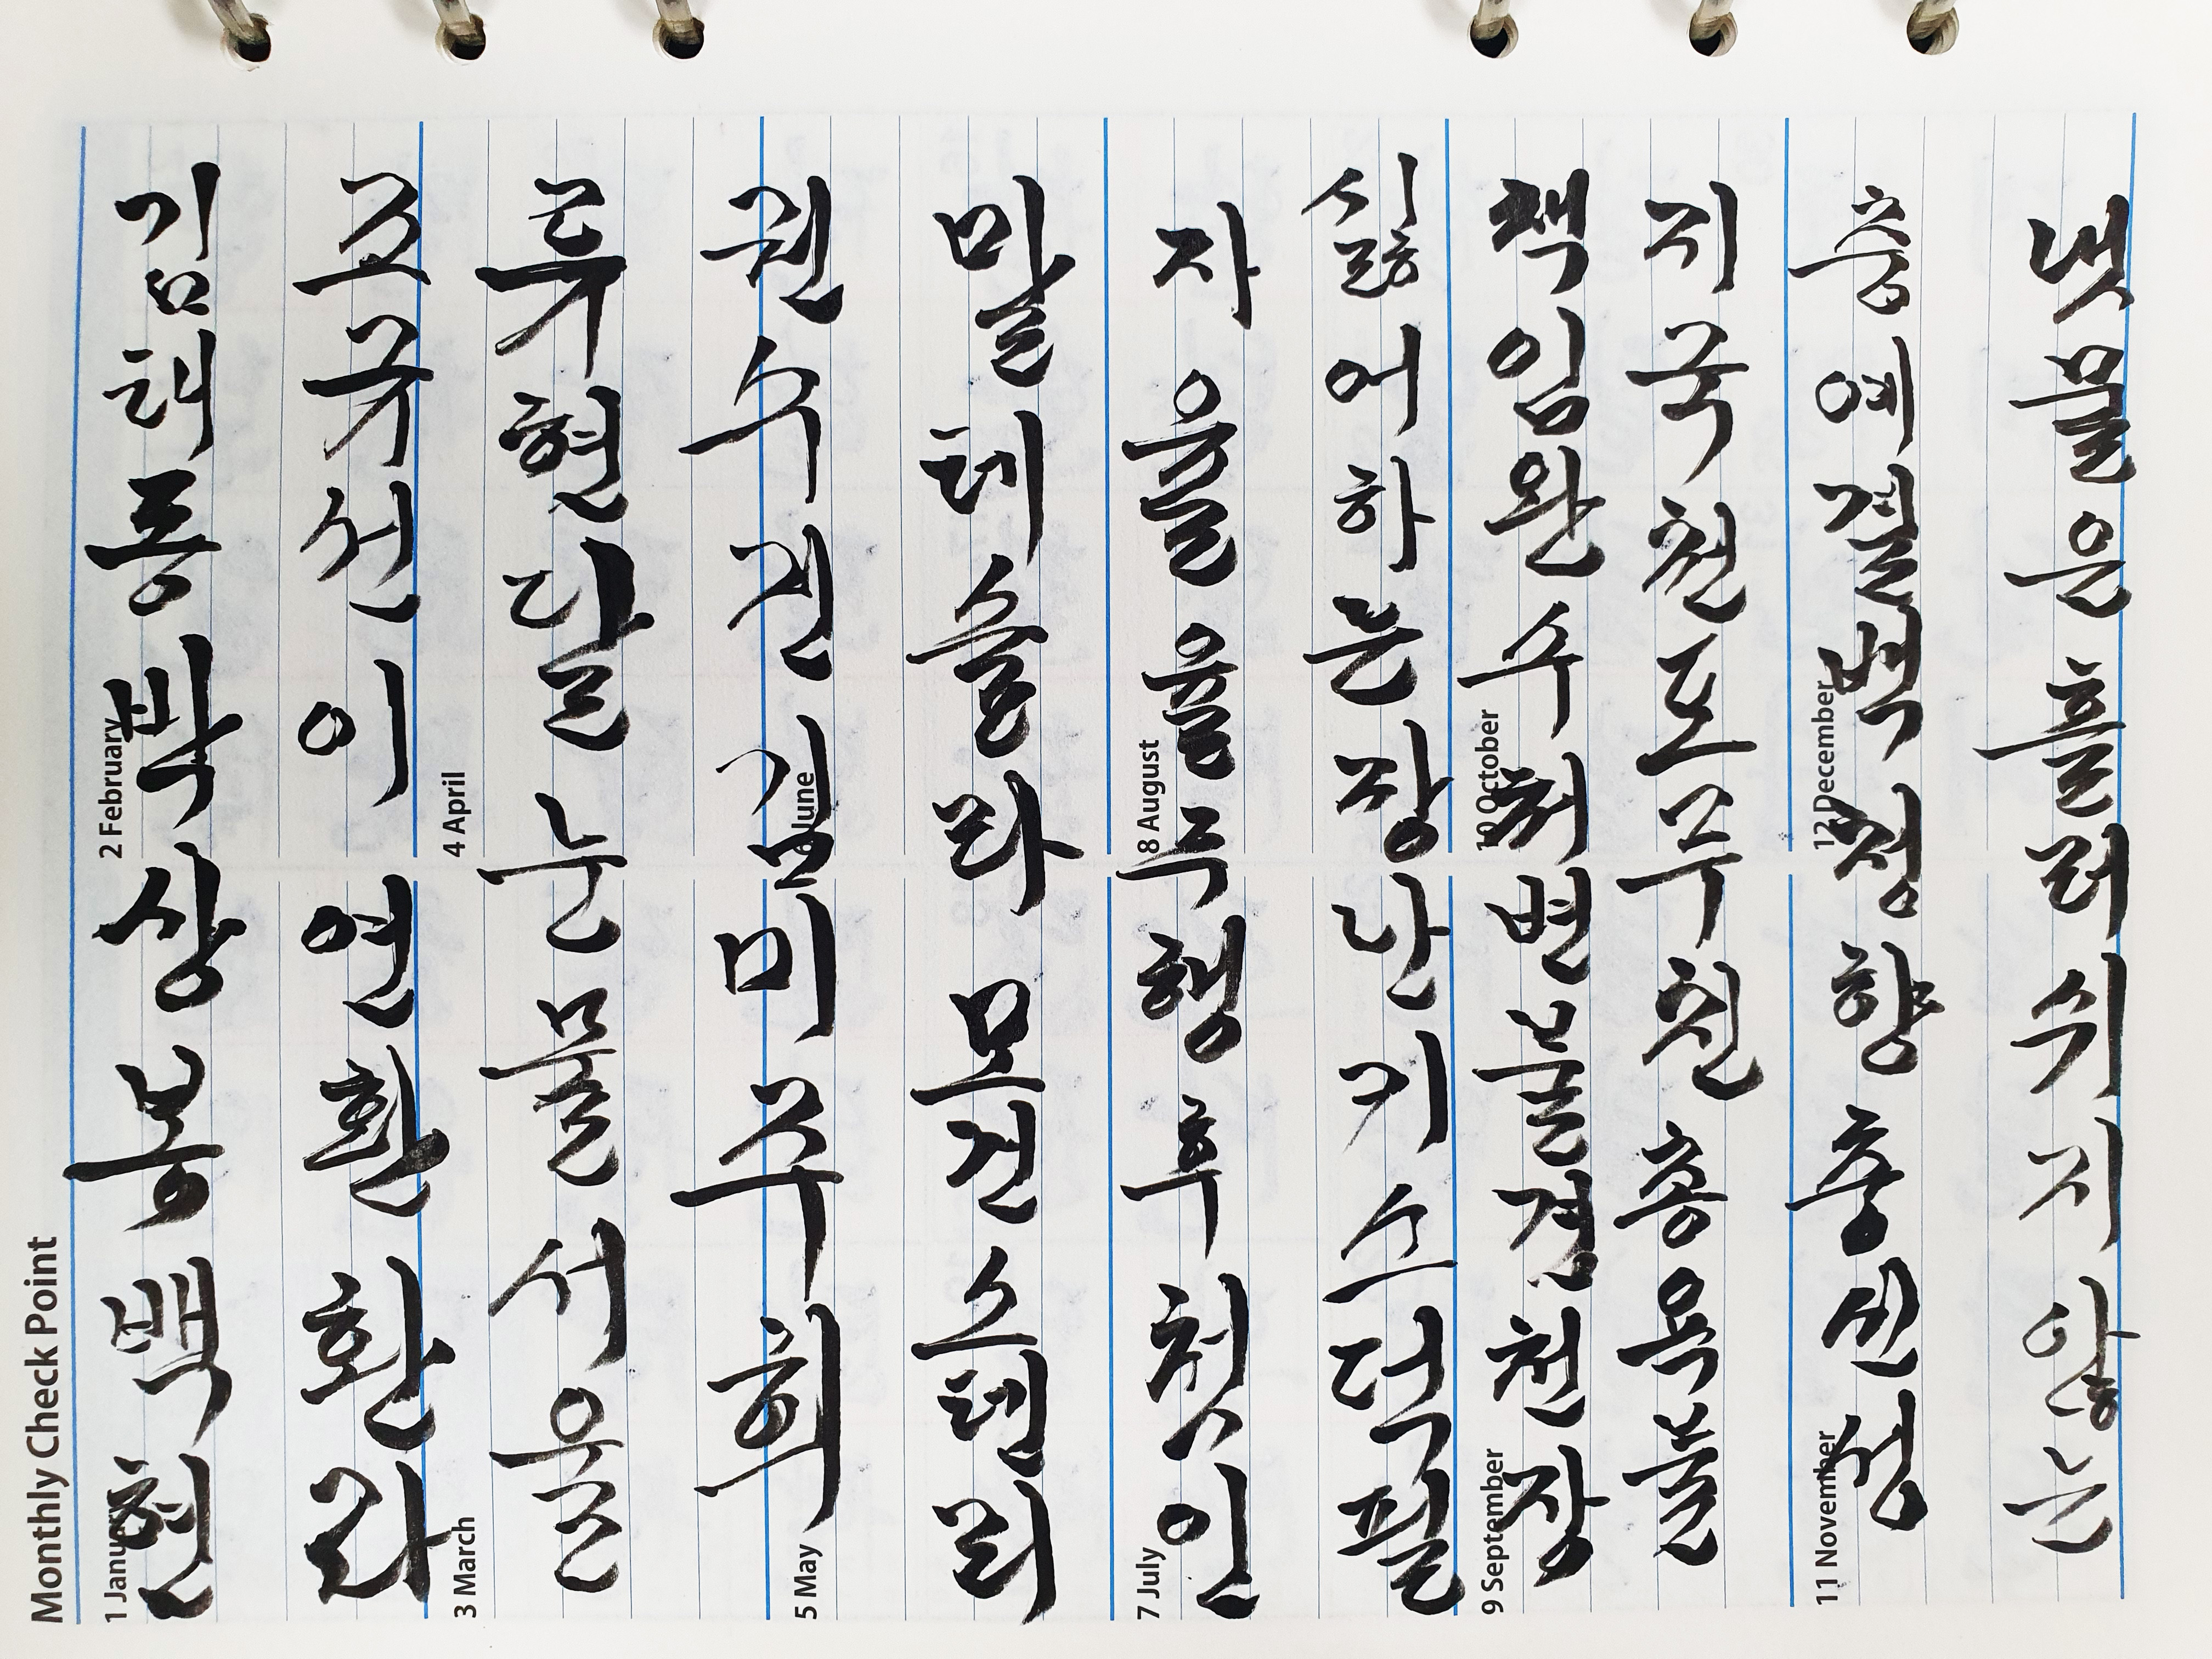 Monthly Check Point
1 January
2 February
3 March
4 April
5 May
6 June
7 July
8 August
9 September
10 October
11 November
12 December
김태룡박상봉백현
조규선이연환환라
류현달눈물서울
권수진김미주희
말테슬라모건스텐리
자율율주행후첫인
싫어하는장난키스덕필
책임완수취변불경천장
지국천도무천홍욕불
충예결백정향충신성
냇물은흘러쉬지않는